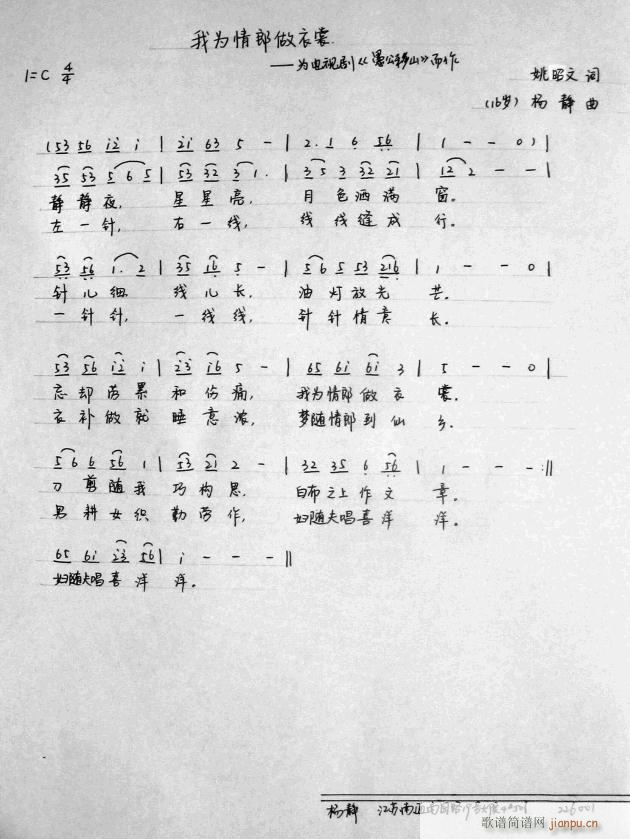 我为情郎做衣裳
——为电视剧《愚公移山》而作
1=C 4/4
姚昭文 词
(16岁) 杨静 曲
(53 56 i2 i | 2i 63 5 - | 2. 1 6 56 | 1 - - 0)|
35 53 5 6 5 | 53 32 3 1. | 3 5 3 32 21 | 12 2 - - |
静静夜, 星星亮, 月色洒满窗。
左一针, 右一线, 线线缝成行。
53 56 1. 2 | 35 16 5 - | 5 6 5 53 216 | 1 - - 0|
针儿细 线儿长, 油灯放光芒。
一针针, 一线线, 针针情意长。
53 56 i2 i | 23 i6 5 - | 65 6i 6i 3 | 5 - - 0|
忘却劳累和伤痛, 我为情郎做衣裳。
衣补做就睡意浓, 梦随情郎到仙乡。
5 6 6 56 1 | 53 21 2 - | 32 35 6 56 | 1 - - - :||
刀剪随我巧构思, 白布之上作文章。
男耕女织勤劳作, 妇随夫唱喜洋洋。
65 6i 23 56 | i - - - ||
妇随夫唱喜洋洋。
杨静 江苏
226001
歌谱简谱网
jianpu.cn